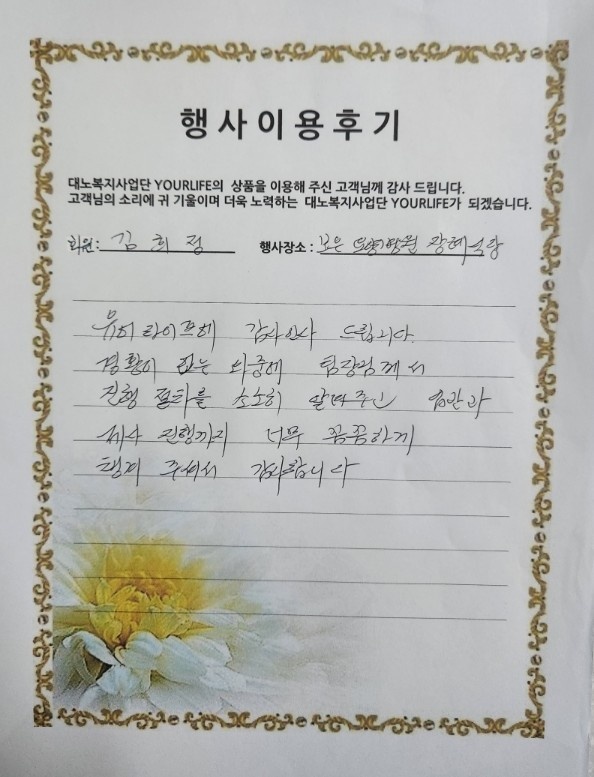 행사이용후기
대노복지사업단 YOURLIFE의 상품을 이용해 주신 고객님께 감사 드립니다.
고객님의 소리에 귀 기울이며 더욱 노력하는 대노복지사업단 YOURLIFE가 되겠습니다.
회원 : 김희정 행사장소 : 보은 장례식장
유어라이프에 감사인사 드립니다.
경황이 없는 와중에 팀장님께서
진행 절차를 소소히 알려주신 입관과
제사 진행까지 너무 꼼꼼하게
챙겨 주셔서 감사합니다